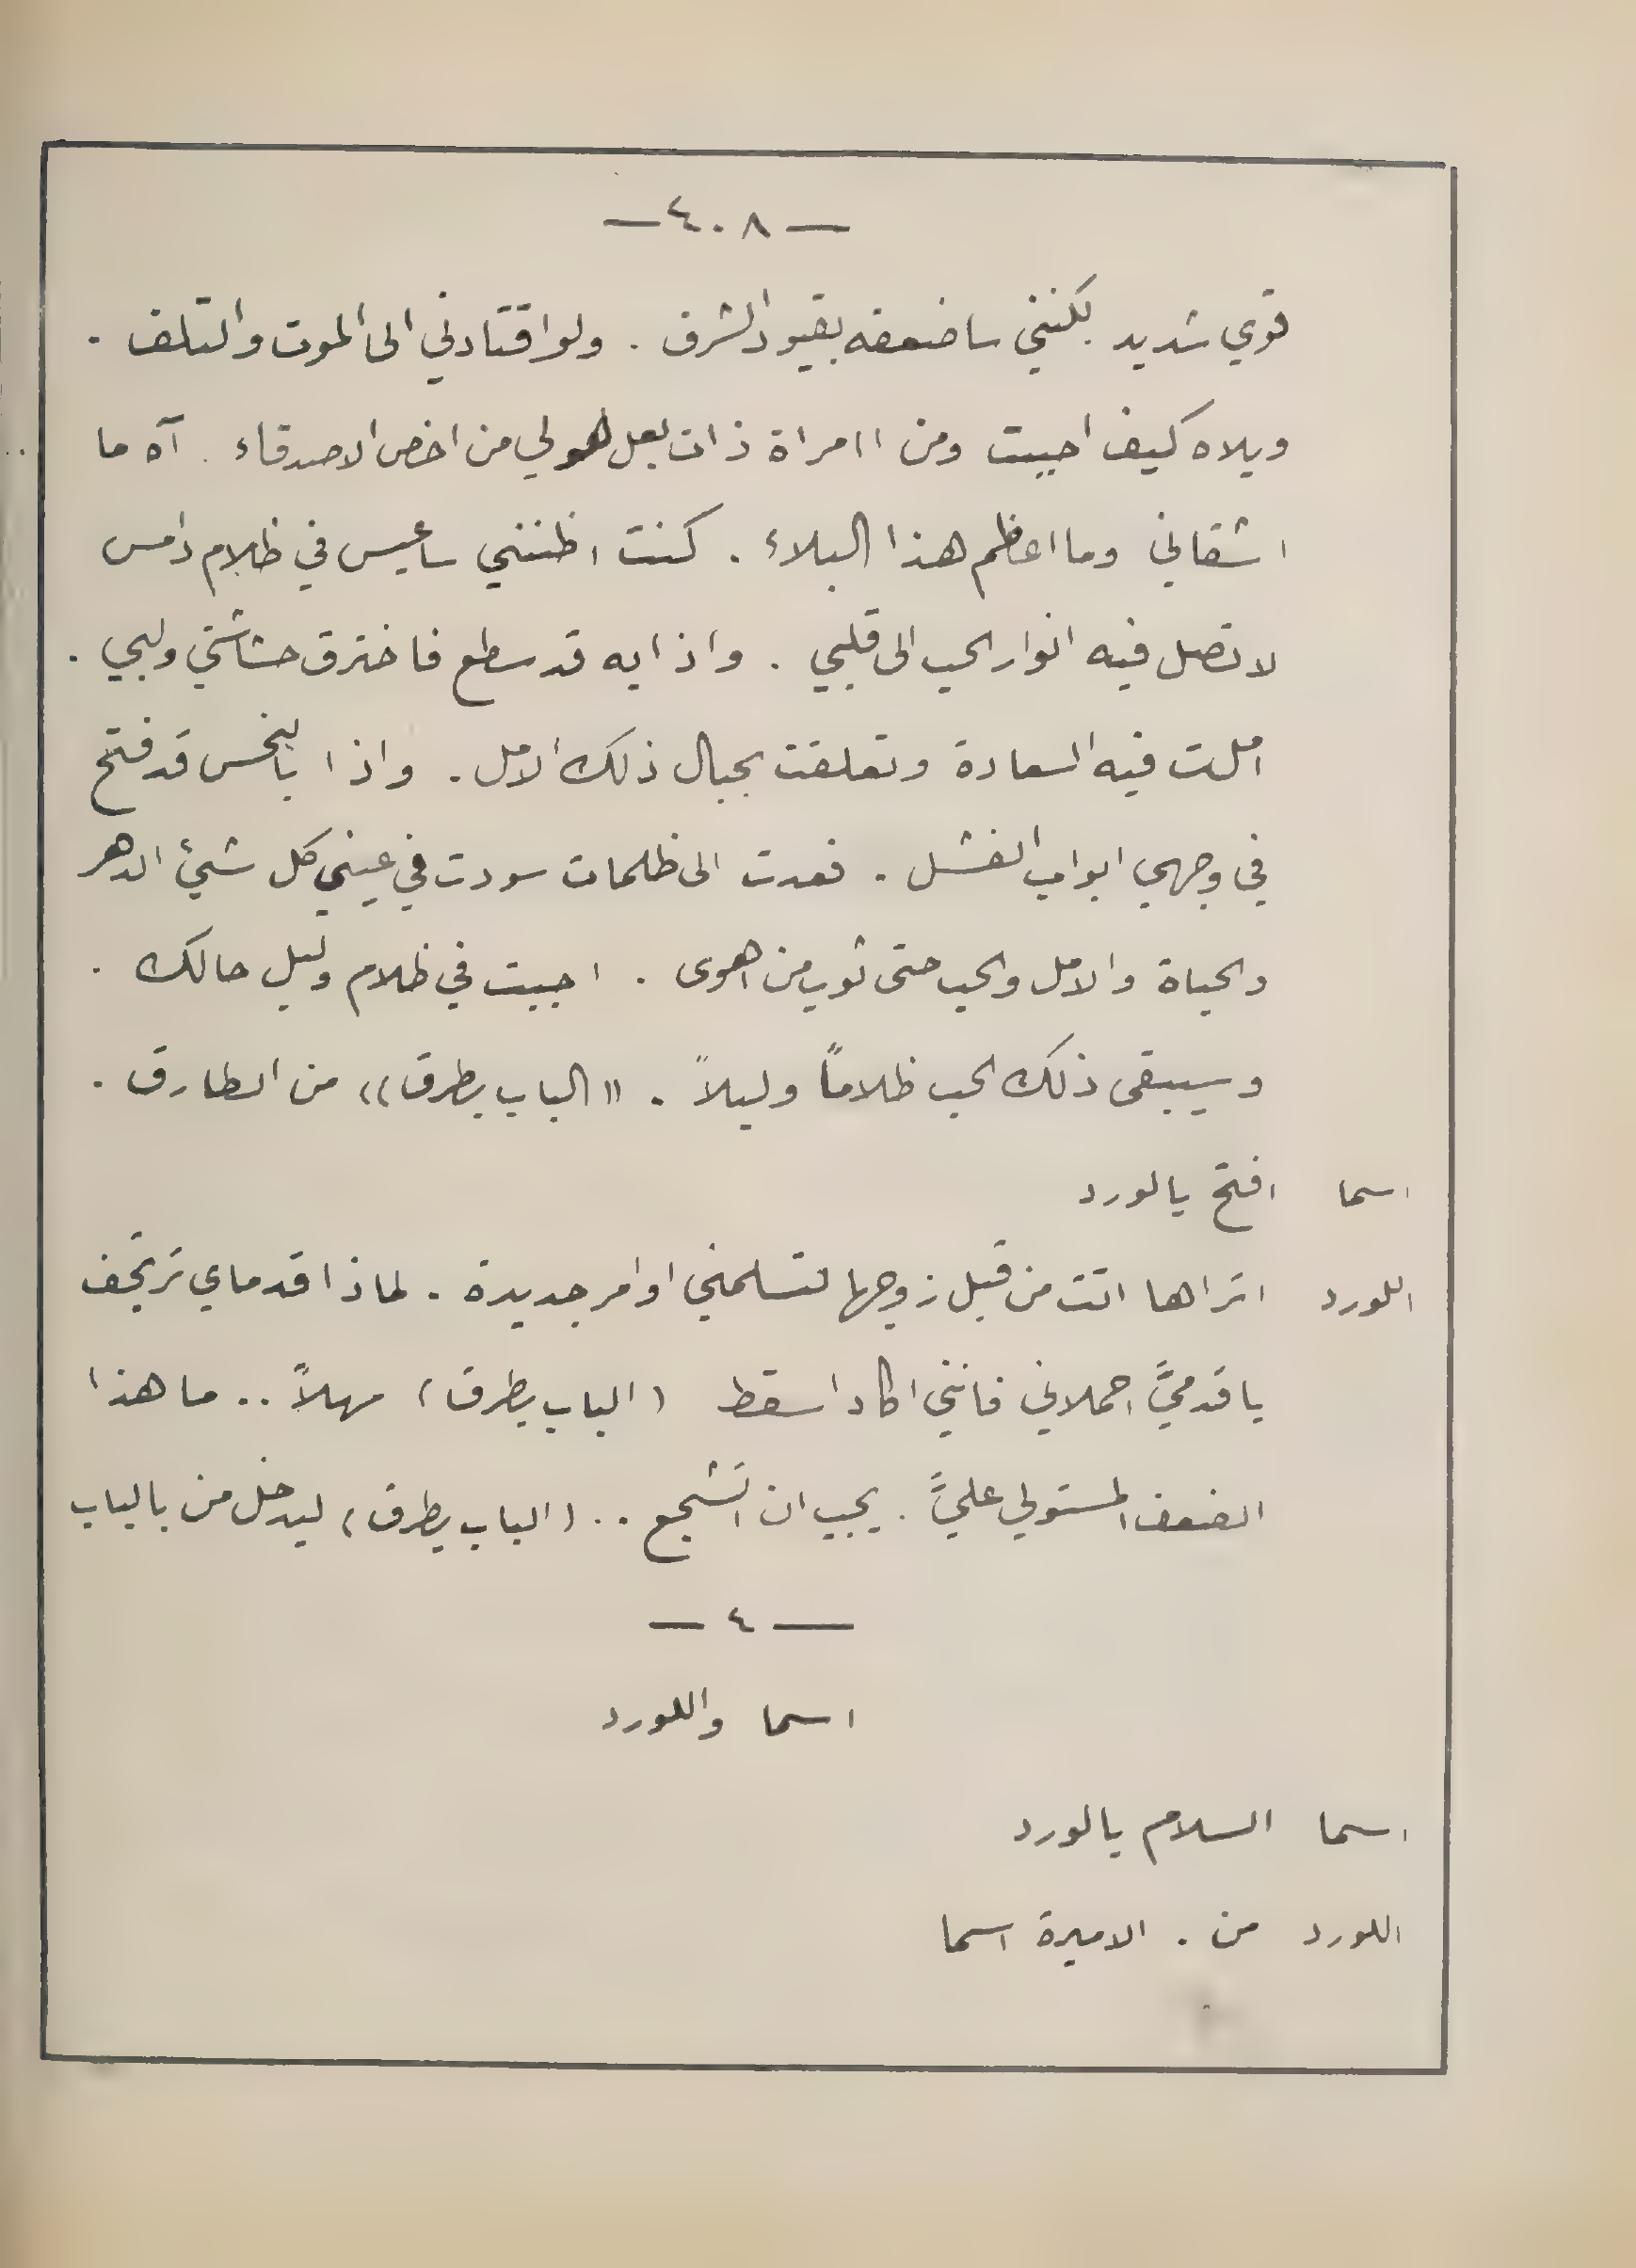 — ٤٠٨ —
قوي شديد لكنني ساضعفه بقيود الشرف . ولو اقتادني الى الموت والتلف .
ويلاه كيف احببت ومن اامراة ذات بعل هو لي من اخص الاصدقاء . آه ما
اشقاني وما اعظم هذا البلاء . كنت اظنني ساعيس في ظلام دامس
لا تصل فيه انوار الحب الى قلبي . واذا به قد سطع فاخترق حشاشتي ولبي .
املت فيه السعادة وتعلقت بحبال ذلك الامل . واذا بالنحس قد فتح
في وجهي ابواب الفشل . فعدت الى ظلمات سودت في عيني كل شيئ الدهر
والحياة والامل والحب حتى ثوب من اهوى . احببت في ظلام وليل حالك .
وسيبقى ذلك الحب ظلاماً وليلاً . « الباب يطرق » من الطارق .
اسما افتح يالورد
اللورد اتراها اتت من قبل زوجها لتسلمني اوامر جديدة . لماذا قدماي ترتجف
يا قدميَّ احملاني فانني اكاد اسقط ( الباب يطرق ) مهلاً .. ما هذا
الضعف المستولي عليَّ . يجب ان اتشجع .. ( الباب يطرق ) ليدخل من بالباب
— ٤ —
اسما واللورد
اسما السلام يالورد
اللورد من . الاميرة اسما